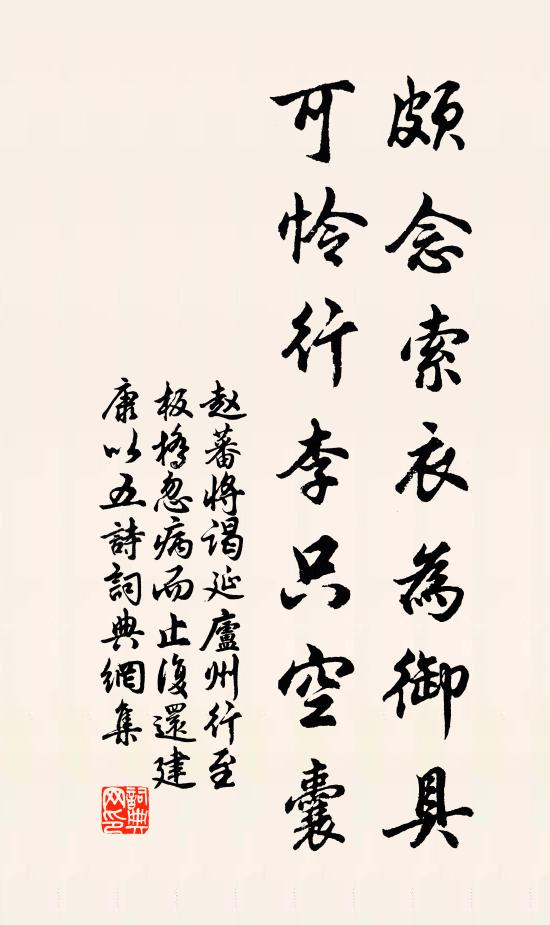 頗念索衣為御具
可怜行李只空囊
赵蕃将谒延廬州行至
板橋忽病而止復還建
康以五詩詞典網集
詞典
网印